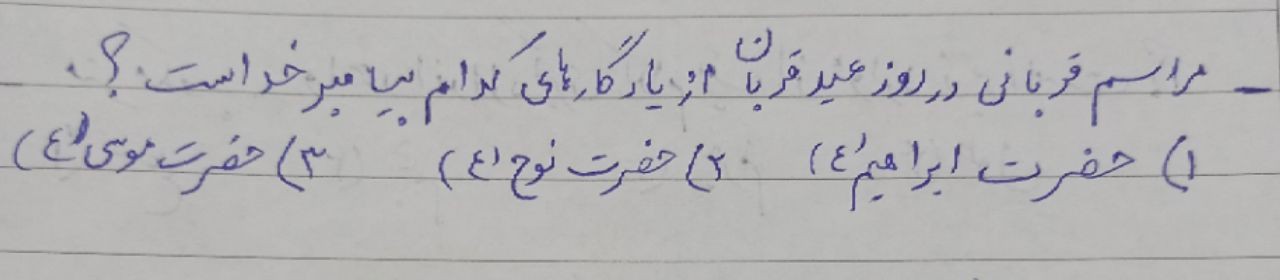 - مراسم قربانی در روز عید قربان از یادگارهای کدام پیامبر خداست؟
۱) حضرت ابراهیم (ع) ۲) حضرت نوح (ع) ۳) حضرت موسی (ع)